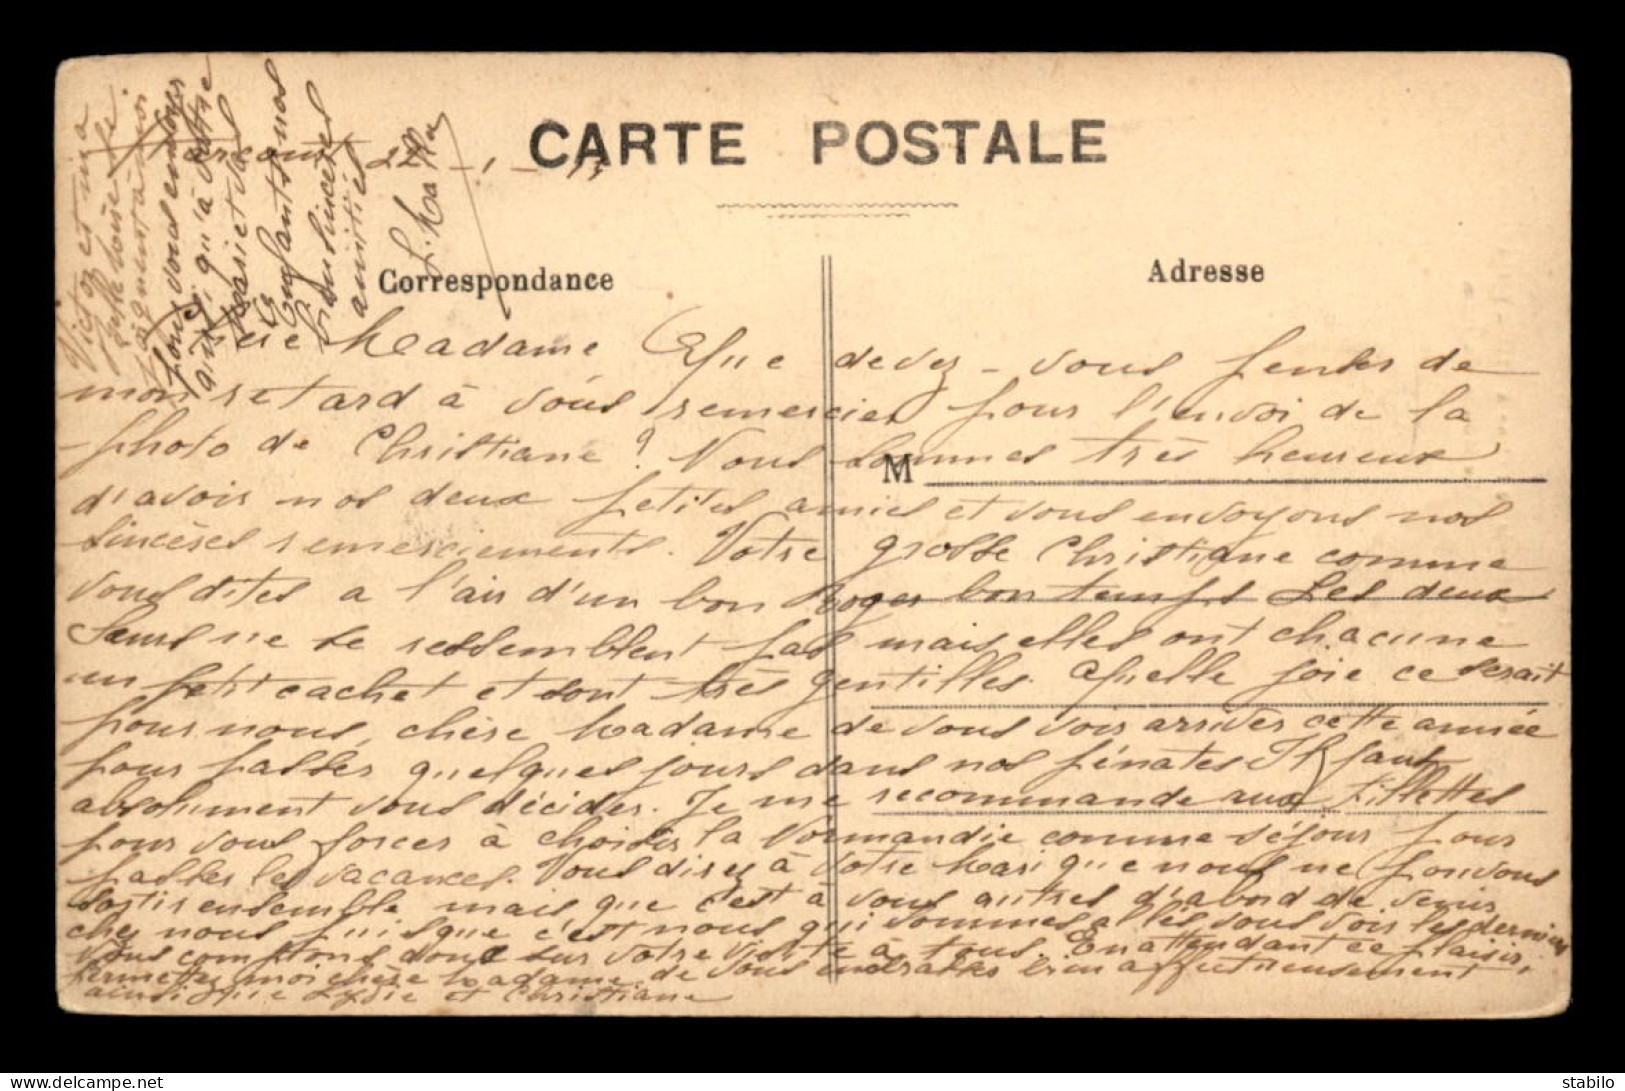 CARTE POSTALE
Harcourt 22 - 1 - 13
Correspondance
Adresse
M
Chère Madame Que devez-vous penser de
mon retard à vous remercier pour l'envoi de la
photo de Christiane ? Nous sommes très heureux
d'avoir nos deux petites amies et vous envoyons nos
sincères remerciements. Votre grosse Christiane comme
vous dites a l'air d'un bon Roger bon temps Les deux
sœurs ne se ressemblent pas mais elles ont chacune
un petit cachet et sont très gentilles. Quelle joie ce serait
pour nous, chère Madame de vous voir arriver cette année
pour passer quelques jours dans nos pénates Il faut
absolument vous décider. Je me recommande aux fillettes
pour vous forcer à choisir la Normandie comme séjour pour
passer les vacances. Vous direz à votre Mari que nous ne pouvons
sortir ensemble mais que c'est à vous autres d'abord de venir
chez nous puisque c'est nous qui sommes allés vous voir les derniers
Nous comptons donc sur votre visite à tous. En attendant ce plaisir,
permettez moi chère Madame de vous embrasser bien affectueusement
ainsi que Lysie et Christiane
Victor et ma
petite Louise se
joignent à moi
pour vous envoyer
ainsi qu'à votre
mari et vos
enfants nos
bien sincères
amitiés
stabilo